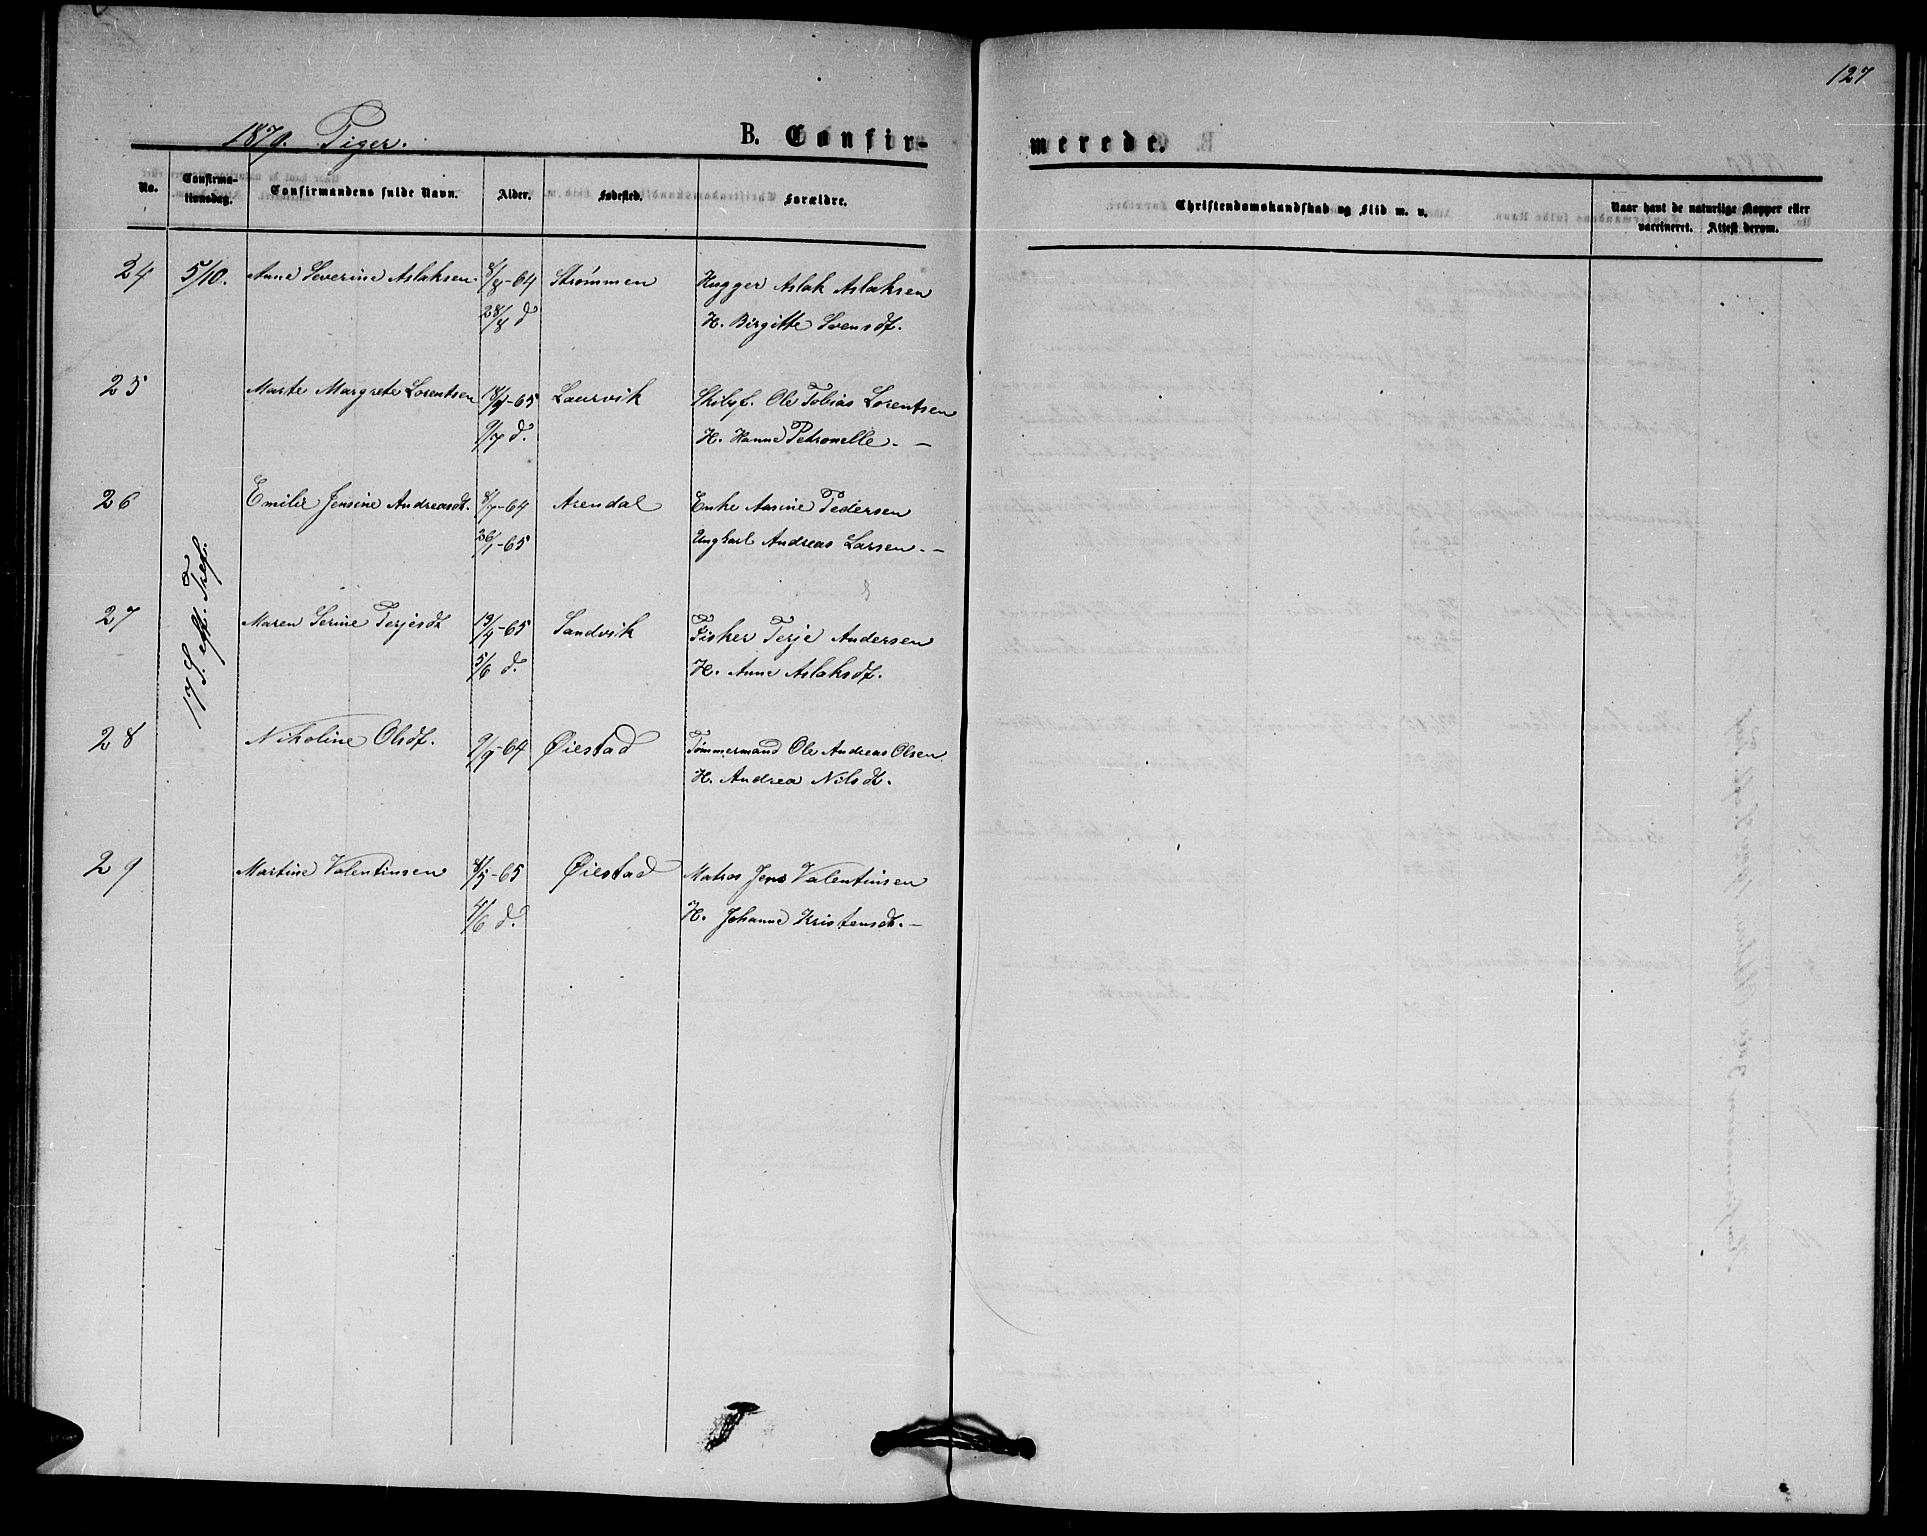 127
1879. Piger. B. Confir-
merede.
No. Confirma-
tionsdag. Confirmandens fulde Navn. Alder. Fødested. Forældre.
Christendomskundskab og Flid m. v. Naar havt de naturlige Kopper eller
vaccineret. Attest derom.
24 5/10. Anne Severine Aslaksen. 8/8-64 Strømmen Hugger Aslak Aslaksen
28/8 d H. Birgitte Svensdt.
25 Marte Margrete Lorentsen 18/4-65 Laurvik Skibsf. Ole Tobias Lorentsen
9/7 d. H. Hanne Petronelle. -
26 Emilie Jensine Andreasdt. 8/7-64 Arendal Enke Aasine Pedersen
26/1-65 Ungkarl Andreas Larsen. -
17 S. eft. Tref.
27 Maren Serine Terjesdt 19/4-65 Sandvik Fisker Terje Andersen
5/6 d. H. Anne Aslaksdt.
28 Nikoline Olsdt. 9/9-64 Øiestad Tømmermand Ole Andreas Olsen
H. Andrea Nilsdt.
29 Martine Valentinsen 8/5-65 Øiestad Matros Jens Valentinsen
4/6 d. H. Johanne Kristensdt. -